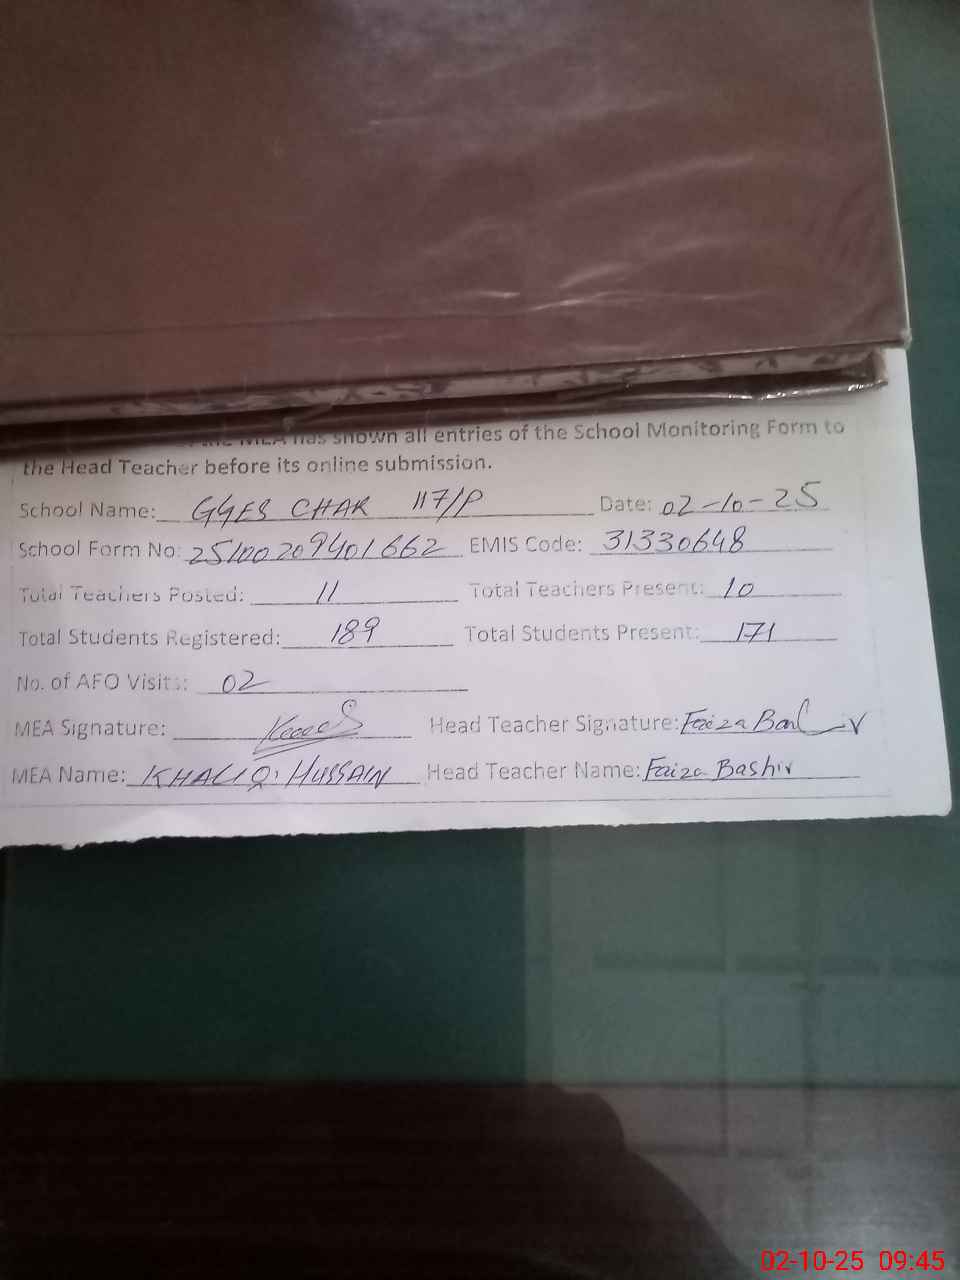 the MEA has shown all entries of the School Monitoring Form to
the Head Teacher before its online submission.
School Name: GGES CHAK 117/P Date: 02-10-25
School Form No: 25100209401662 EMIS Code: 31330648
Total Teachers Posted: 11 Total Teachers Present: 10
Total Students Registered: 189 Total Students Present: 171
No. of AFO Visits: 02
MEA Signature: Head Teacher Signature: Faiza Bashir
MEA Name: KHALIQ HUSSAIN Head Teacher Name: Faiza Bashir
02-10-25 09:45